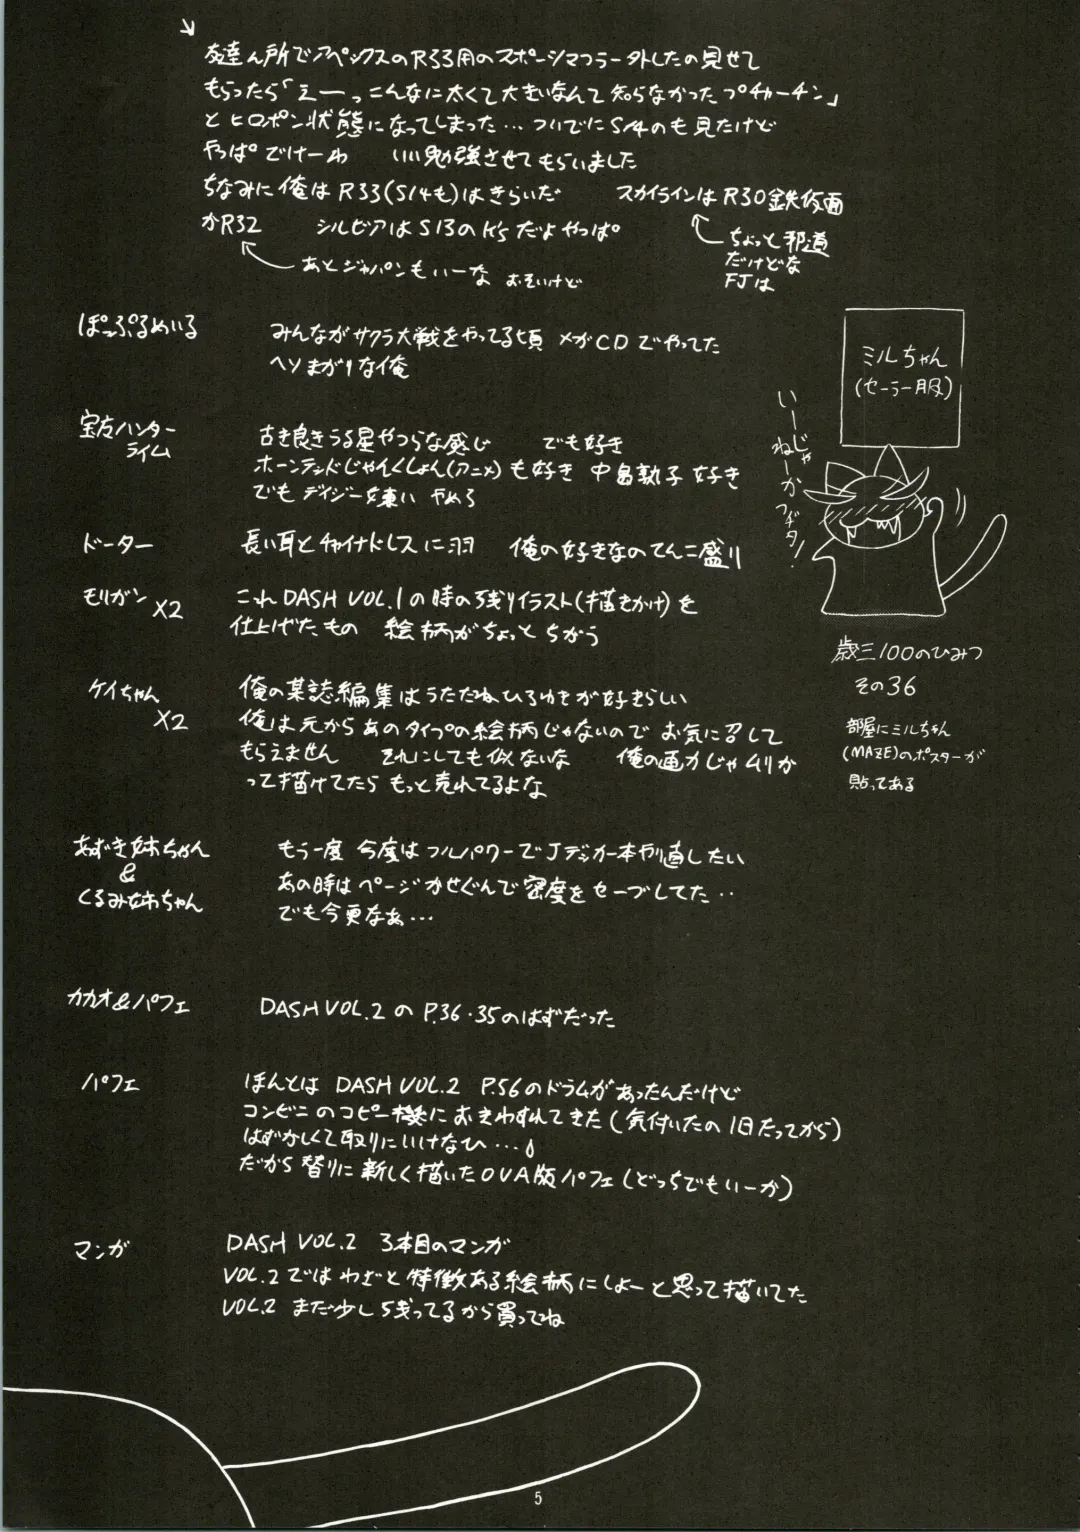 友達ん所でアペックスのR33用のスポーシマフラー外したの見せて
もらったら「えーっこんなに太くて大きいなんて知らなかったプチャーチン」
とヒロポン状態になってしまった…ついでにS14のも見たけど
やっぱでけーわ いい勉強させてもらいました
ちなみに俺はR33(S14も)はきらいだ スカイラインはR30鉄仮面
かR32 シルビアはS13のK'sだよやっぱ
ちょっと邪道
だけどな
FJは
あとジャパンもいーな おそいけど
ぽっぷるめいる
みんながサクラ大戦をやってる頃 メガCDでやってた
ヘソまがりな俺
宝友ハンター
ライム
古き良きうる星やつらな感じ でも好き
ホーンテッドじゃんくしょん(アニメ)も好き 中島敦子好き
でもデイジー嫌い やめろ
ドーター
長い耳とチャイナドレスに羽 俺の好きなのてんこ盛り
モリガン
X2
これDASH VOL.1の時の残りイラスト(描きかけ)を
仕上げたもの 絵柄がちょっとちがう
ケイちゃん
X2
俺の某誌編集はうたたねひろゆきが好きらしい
俺は元からあのタイプの絵柄じゃないので お気に召して
もらえません それにしても似ないな 俺の画力じゃムリか
って描けてたらもっと売れてるよな
あずき姉ちゃん
&
くるみ姉ちゃん
もう一度 今度はフルパワーでJデッカー本やり直したい
あの時はページかせぐんで密度をセーブしてた‥
でも今更なぁ…
カカオ&パフェ
DASH VOL.2のP.36・35のはずだった
パフェ
ほんとはDASH VOL.2 P.56のドラムがあったんだけど
コンビニのコピー機におきわすれてきた(気付いたの1日たってから)
はずかしくて取りにいけなひ…
だから替りに新しく描いたOVA版パフェ(どっちでもいーか)
マンガ
DASH VOL.2 3本目のマンガ
VOL.2ではわざと特徴ある絵柄にしよーと思って描いてた
VOL.2 まだ少し残ってるから買ってね
ミルちゃん
(セーラー服)
いーじゃ
ねーか
歳三100のひみつ
その36
部屋にミルちゃん
(MAZE)のポスターが
貼ってある
5